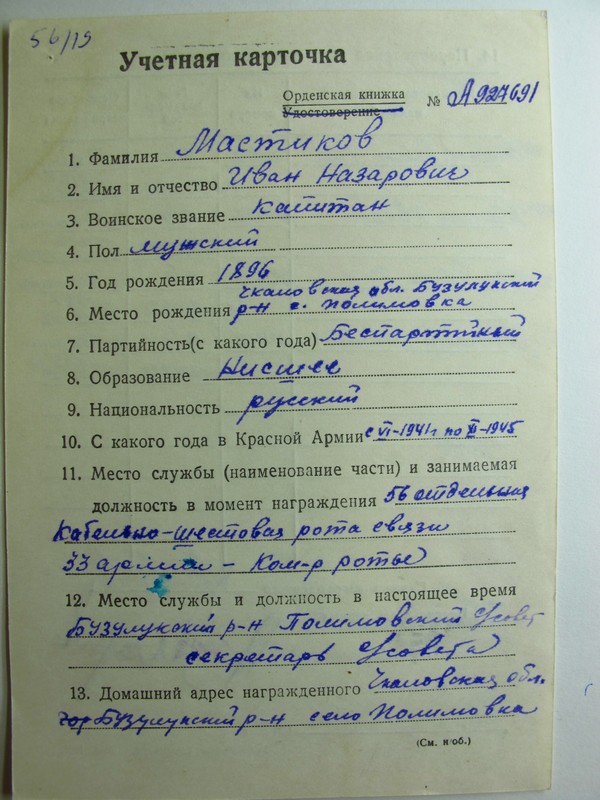 56/19
Учетная карточка
Орденская книжка
Удостоверение № А 927691
1. Фамилия Мастиков
2. Имя и отчество Иван Назарович
3. Воинское звание капитан
4. Пол мужский
5. Год рождения 1896
Чкаловская обл. Бузулукский
6. Место рождения р-н с. Полимовка
7. Партийность(с какого года) Беспартийный
8. Образование Низшее
9. Национальность русский
10. С какого года в Красной Армии с VI-1941г по XI-1945
11. Место службы (наименование части) и занимаемая
должность в момент награждения 56 отдельная
Кабельно-шестовая рота связи
33 армии - Ком-р роты
12. Место службы и должность в настоящее время
Бузулукский р-н Полимовский с/совет
секретарь с/совета
13. Домашний адрес награжденного Чкаловская обл.
гор Бузулукский р-н село Полимовка
(См. н/об.)